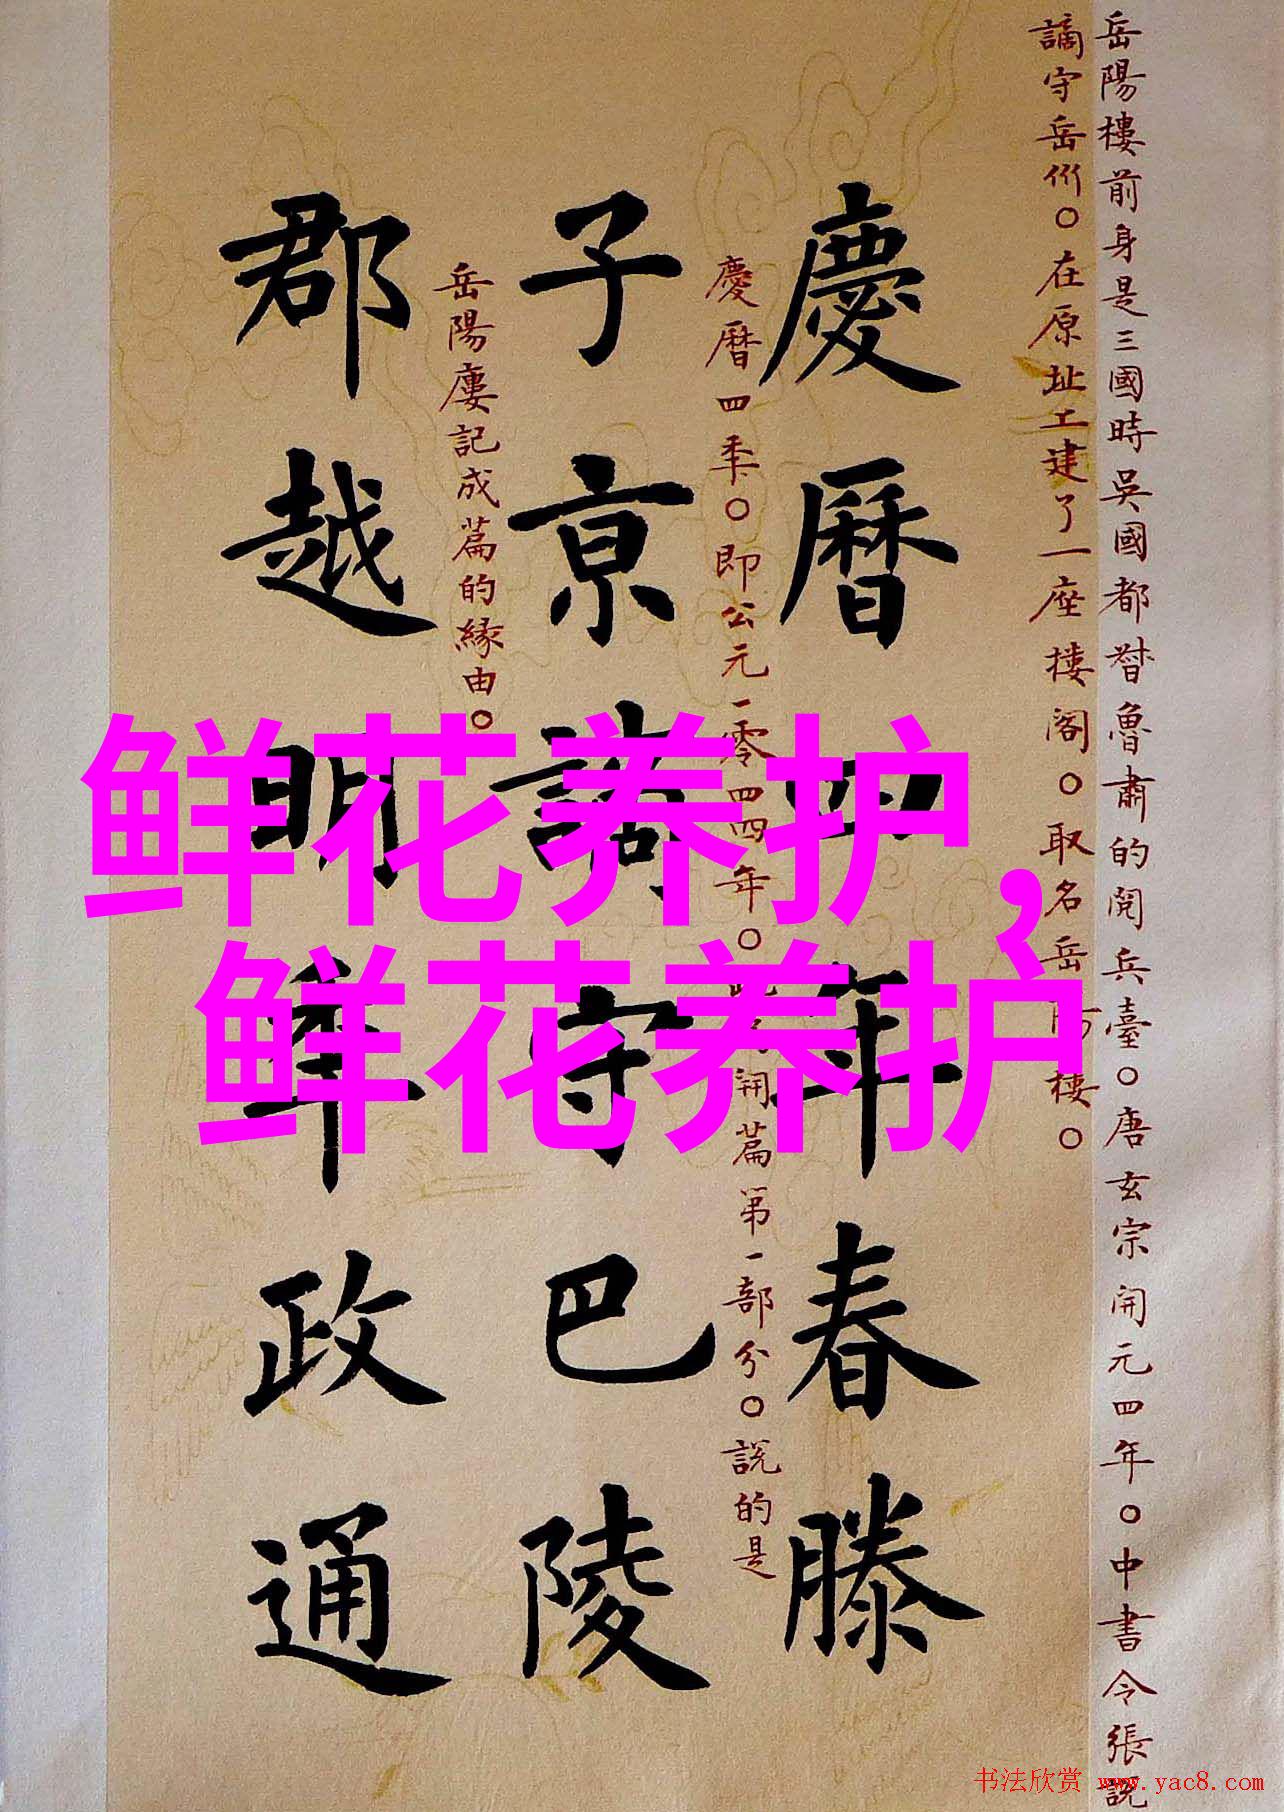 岳陽樓前身是三國時吳國都督魯肅的閱兵臺○唐玄宗開元四年○中書令張說
謫守岳州○在原址工建了一座樓閣○取名岳樓○
慶暦四年春滕
慶暦四秊○即公元一零四四年○開篇第一部分○說的是
子京謫守巴陵
岳陽廔記成篇的緣由○
郡越明年政通
鲜花养护,
鲜花养护
书法欣赏 www.yac8.com